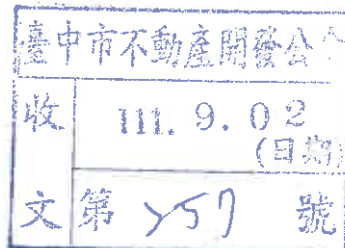 臺中市不動產開發公會
收 111. 9. 02
(日期)
文 第 757 號